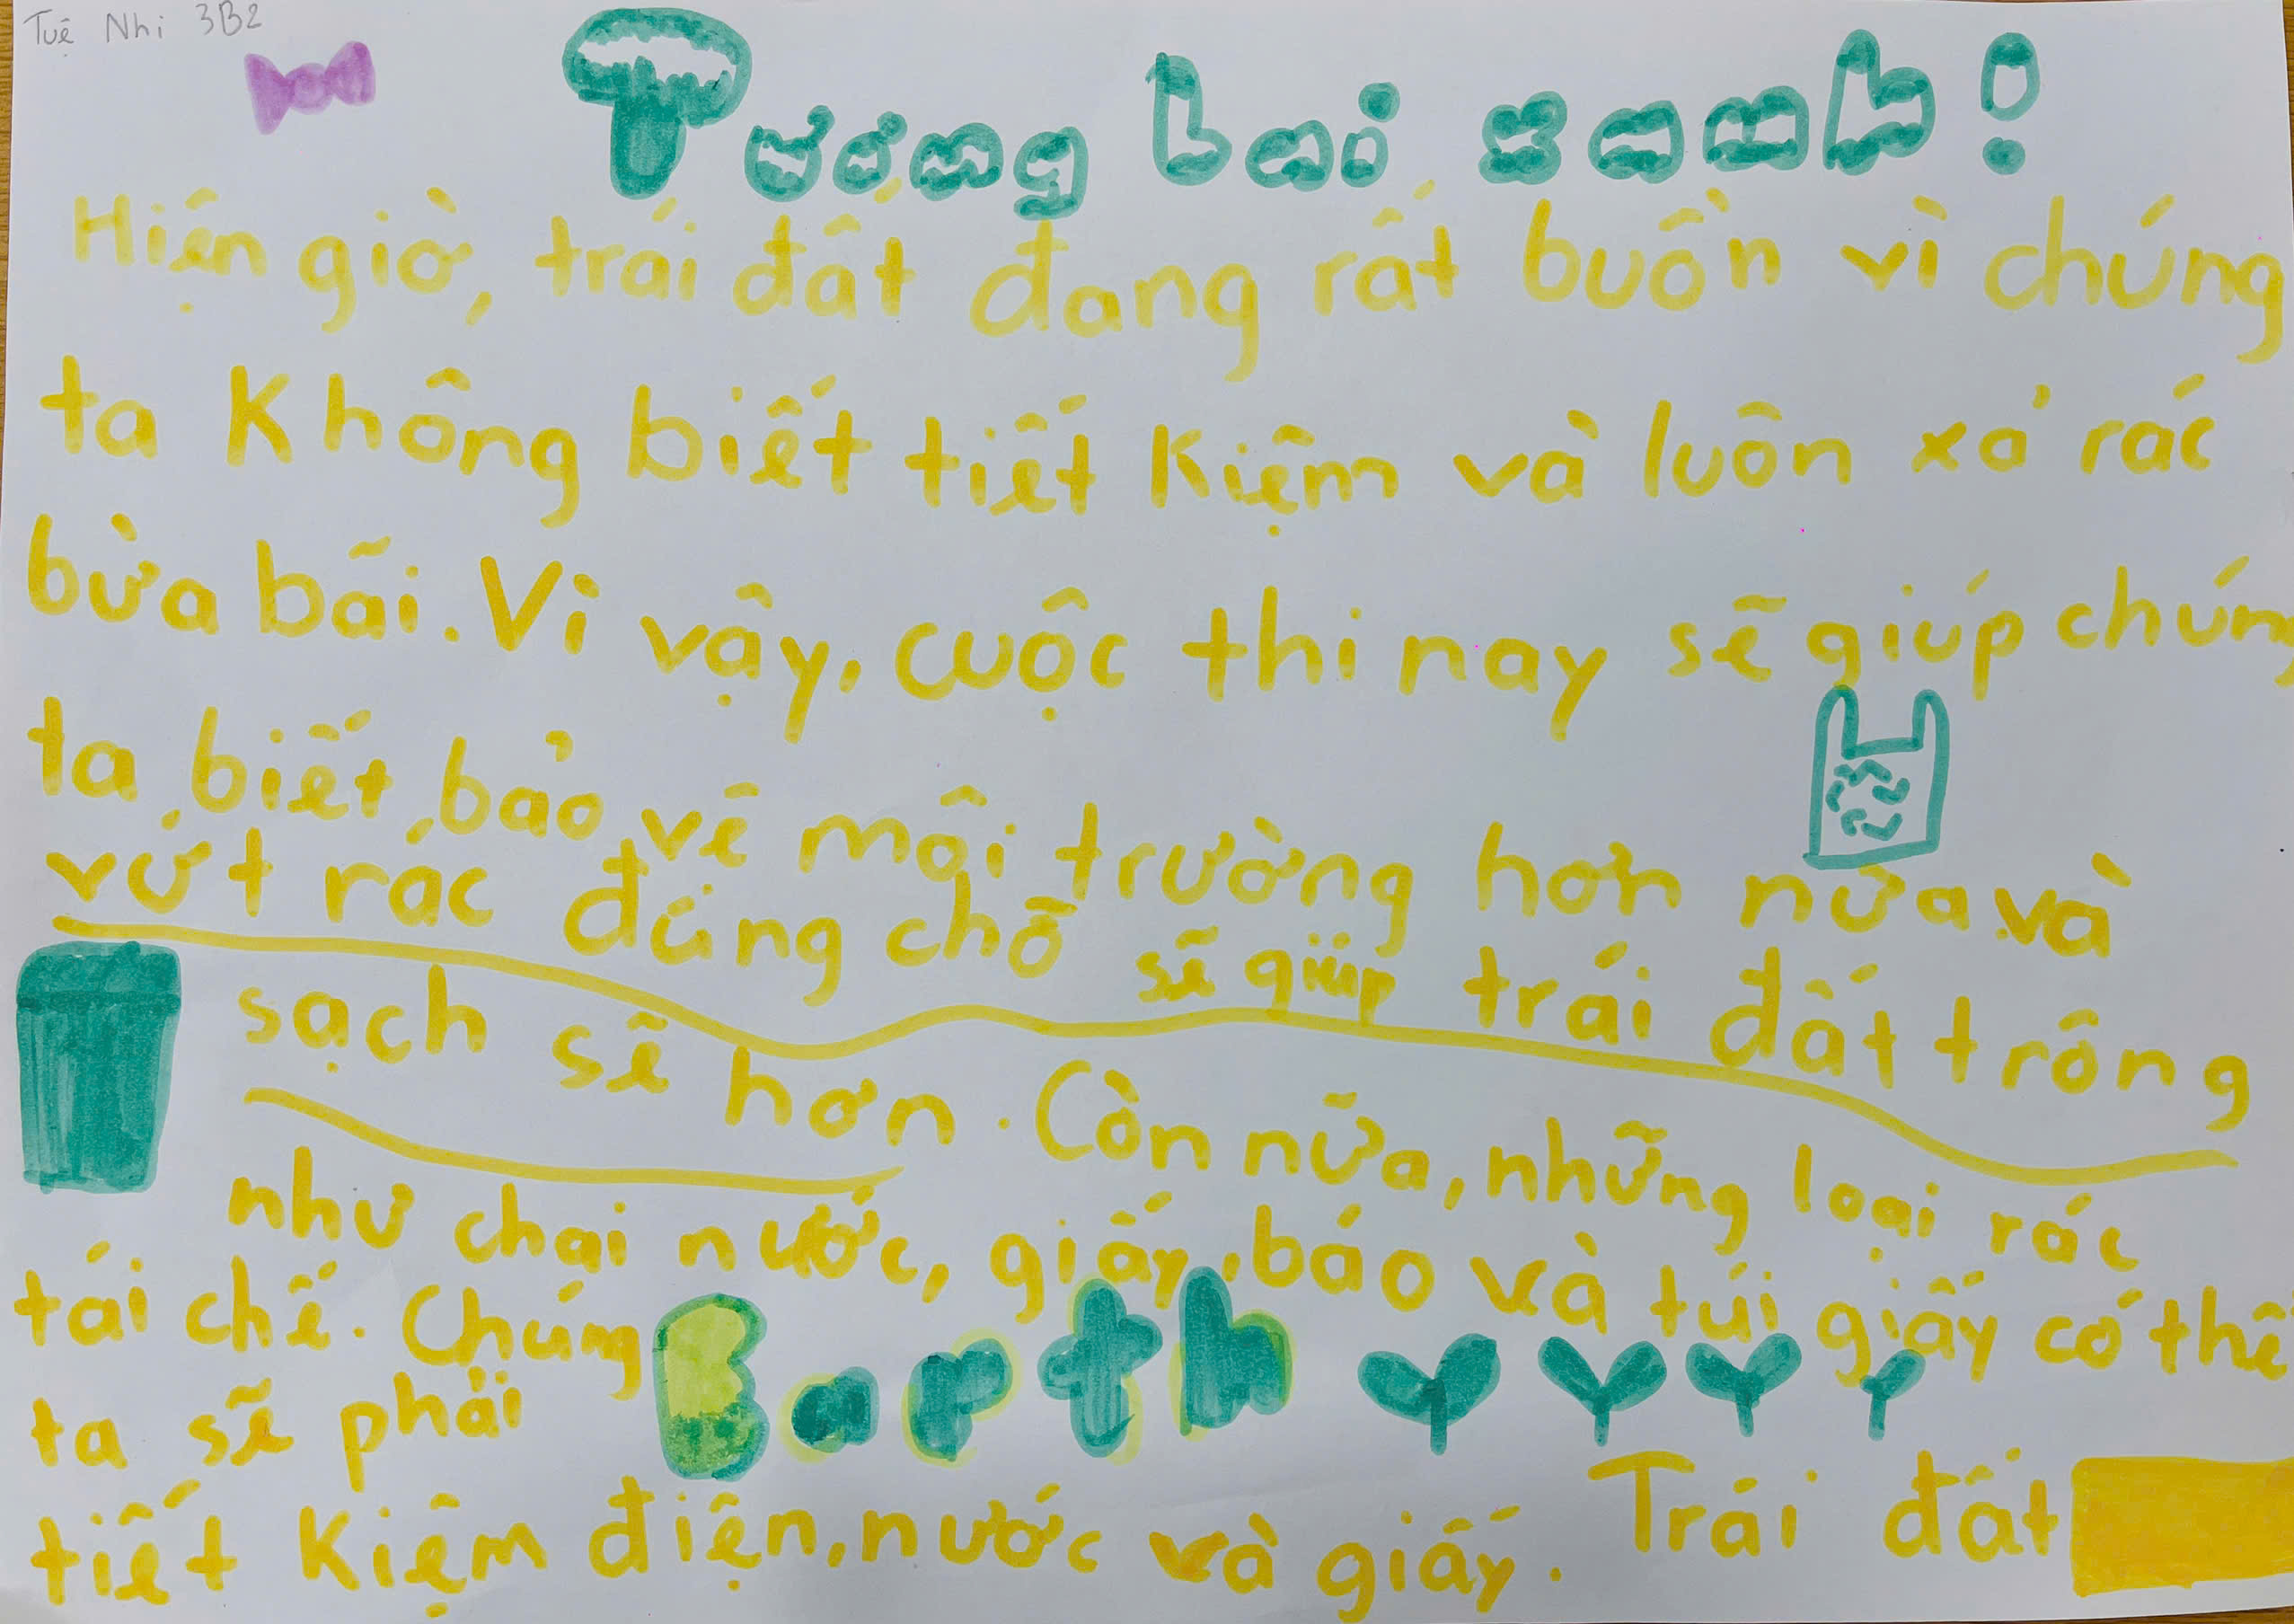 Tuệ Nhi 3B2
Tương lai xanh!
Hiện giờ, trái đất đang rất buồn vì chúng
ta không biết tiết kiệm và luôn xả rác
bừa bãi. Vì vậy, cuộc thi nay sẽ giúp chúng
ta biết bảo vệ môi trường hơn nữa và
vứt rác đúng chỗ sẽ giúp trái đất trông
sạch sẽ hơn. Còn nữa, những loại rác
như chai nước, giấy, báo và túi giấy có thể
tái chế. Chúng
Earth
ta sẽ phải
tiết kiệm điện, nước và giấy. Trái đất